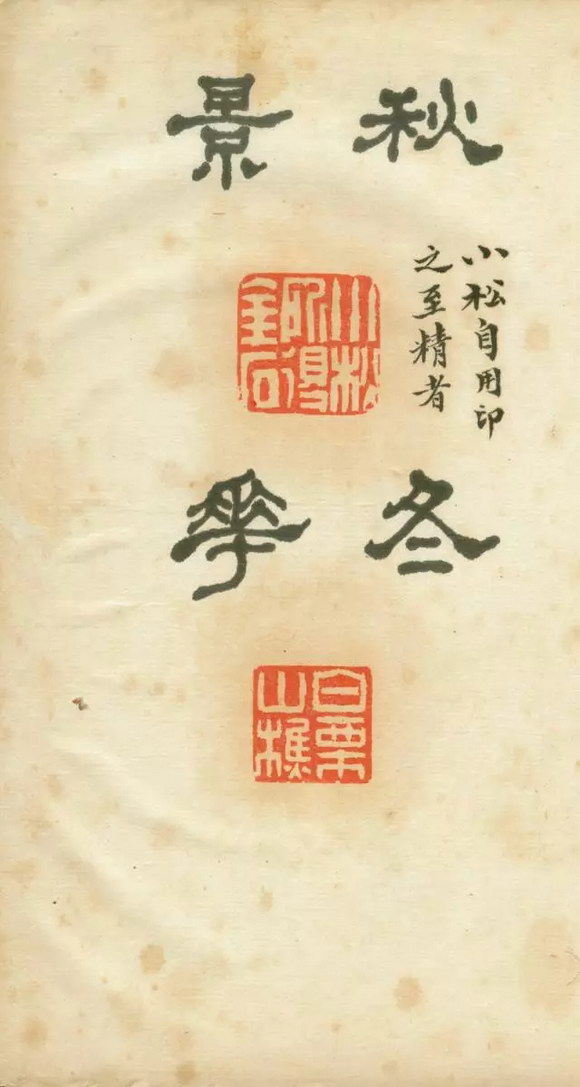 秋景
小松自用印
之至精者
小松
所得
金石
冬華
白栗
山樵